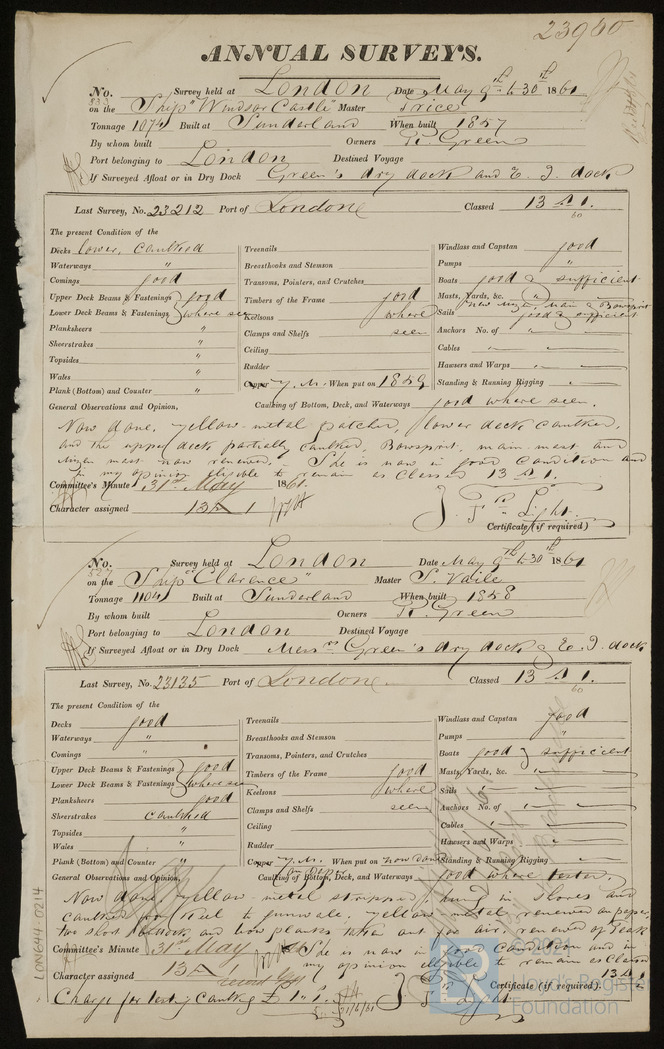 23960
ANNUAL SURVEYS.
No. 525 Survey held at London Date May 9th to 30th 1861
on the Ship "Windsor Castle" Master Price
Tonnage 1074 Built at Sunderland When built 1857
By whom built Owners R. Green
Port belonging to London Destined Voyage
If Surveyed Afloat or in Dry Dock Green's dry dock and E. I. dock
Last Survey, No. 23212 Port of London Classed 13 A 1.
60
The present Condition of the
Decks lower, caulked
Waterways "
Comings good
Upper Deck Beams & Fastenings } good
Lower Deck Beams & Fastenings } where seen
Planksheers "
Sheerstrakes "
Topsides "
Wales "
Plank (Bottom) and Counter "
Treenails
Breasthooks and Stemson
Transoms, Pointers, and Crutches
Timbers of the Frame good
Keelsons where
Clamps and Shelfs seen
Ceiling
Rudder
Copper Y. M. When put on 1859
Windlass and Capstan good
Pumps "
Boats good & sufficient
Masts, Yards, &c. "
now Mizen, Main & Bowsprit
Sails good & sufficient
Anchors No. of "
Cables "
Hawsers and Warps "
Standing & Running Rigging "
General Observations and Opinion, Caulking of Bottom, Deck, and Waterways good where seen.
Now done, yellow metal patched, lower deck caulked,
and the upper deck partially caulked, Bowsprit, main mast and
mizen mast now renewed. She is now in good condition and
in my opinion eligible to remain as Classed 13 A 1.
Committee's Minute 31st May 1861.
Character assigned 13 A 1
J. F. Light
Certificate (if required)
No. 527 Survey held at London Date May 9th to 30th 1861
on the Ship "Clarence" Master S. Vaile
Tonnage 1104 Built at Sunderland When built 1858
By whom built Owners R. Green
Port belonging to London Destined Voyage
If Surveyed Afloat or in Dry Dock Messrs Green's dry dock & E. I. dock
Last Survey, No. 23135 Port of London Classed 13 A 1.
60
The present Condition of the
Decks good
Waterways "
Comings "
Upper Deck Beams & Fastenings } good
Lower Deck Beams & Fastenings } where seen
Planksheers good
Sheerstrakes caulked
Topsides "
Wales "
Plank (Bottom) and Counter "
Treenails
Breasthooks and Stemson
Transoms, Pointers, and Crutches
Timbers of the Frame good
Keelsons where
Clamps and Shelfs seen
Ceiling
Rudder
Copper Y. M. When put on now done
on paper
Windlass and Capstan good
Pumps "
Boats good & sufficient
Masts, Yards, &c. "
Sails "
Anchors No. of "
Cables "
Hawsers and Warps "
Standing & Running Rigging "
General Observations and Opinion, Caulking of Bottom, Deck, and Waterways good where tested.
Now done, yellow metal stripped, hung in slaves and
caulked from Keel to gunwale, yellow metal renewed on paper,
two short and two planks taken out for air, renewed of Teak
Committee's Minute 31st May 1861 She is now in good condition and in
my opinion eligible to remain as Classed
Character assigned 13 A 1 13 A 1
Certificate (if required).
Charge for testing caulking £1"1" J. F. Light
21/6/61
LON644-0214
© 2021
LR
Lloyd's Register
Foundation